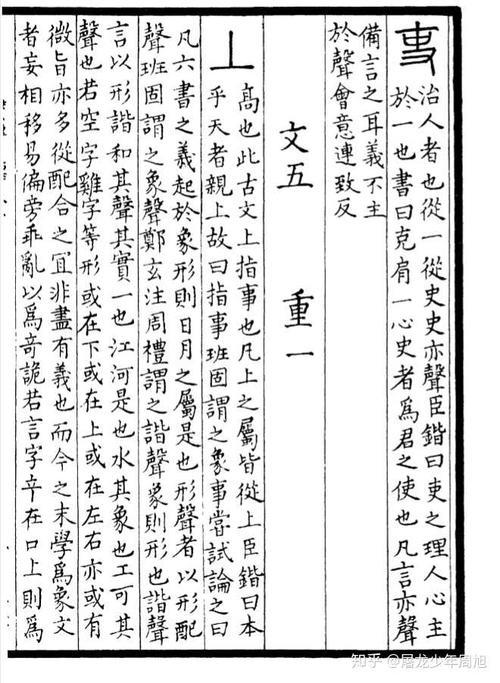 吏 治人者也從一從史史亦聲臣鍇曰吏之理人心主
於一也書曰克肩一心史者爲君之使也凡言亦聲
備言之耳義不主
於聲會意連致反
文五 重一
丄 高也此古文上指事也凡上之屬皆從上臣鍇曰本
乎天者親上故曰指事班固謂之象事嘗試論之曰
凡六書之義起於象形則日月之屬是也形聲者以形配
聲班固謂之象聲鄭玄注周禮謂之諧聲象則形也諧聲
言以形諧和其聲其實一也江河是也水其象也工可其
聲也若空字雞字等形或在下或在上或在左右亦或有
微旨亦多從配合之宜非盡有義也而今之末學爲象文
者妄相移易偏旁乖亂以爲奇詭若言字辛在口上則爲
知乎 @屠龙少年周旭